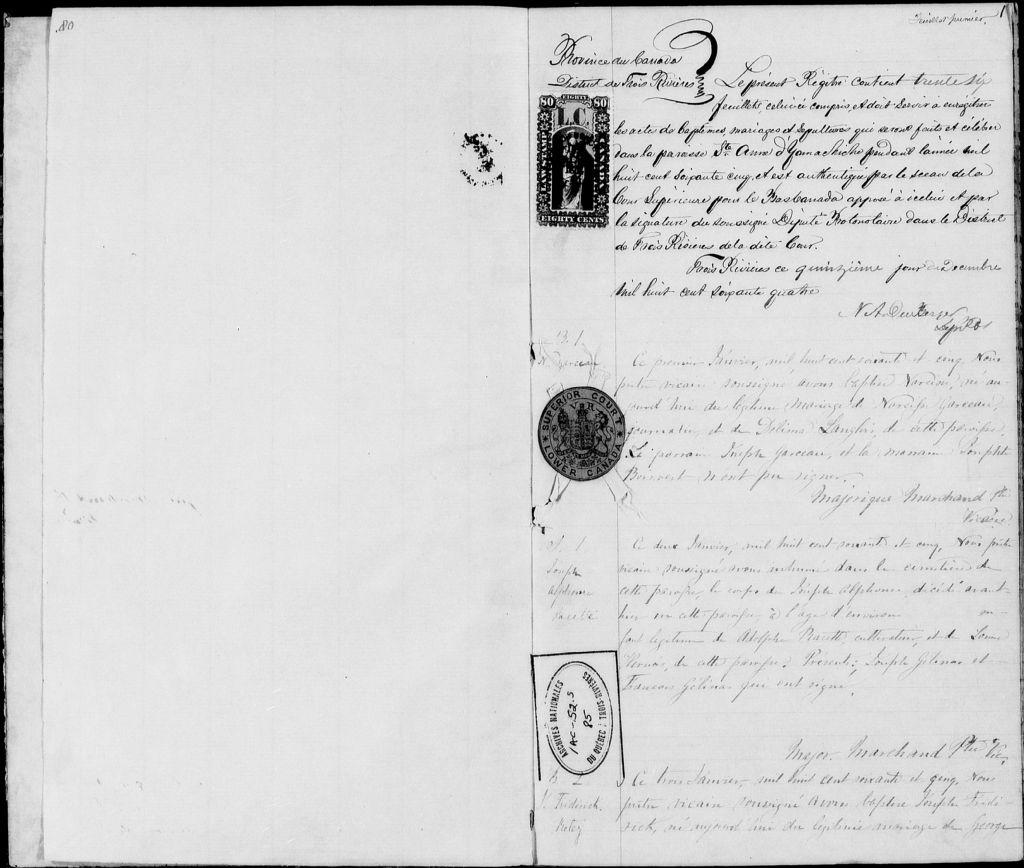 80.
Feuillet premier. 1
Province du Canada
District de Trois Rivières
Le présent Régitre contient trente six
feuillets, celui-ci compris, et doit servir à enregitrer
les acte de Baptêmes, mariages et Sépultures qui seront faits et célébrer
dans la paroisse Ste. Anne d'Yamachiche pendant l'année mil
huit cent soixante cinq, et est authentiqué par le sceau de la
Cour Supérieure pour le Bas Canada apposé à icelui et par
la signature du soussigné Député Protonotaire dans le District
de Trois Rivieres de la dite Cour.
Trois Rivières ce quinzième jour de Decembre
mil huit cent soixante quatre
80 EIGHTY 80
L.C.
LAW STAMP
EIGHTY CENTS
B. 1
N. Garceau
Ce premier Janvier, mil huit cent soixante et cinq, Nous
prêtre vicaire soussigné avons baptisé Narcisse, né au-
jourd'hui du légitime mariage de Narcisse Garceau,
journalier, et de Délima Langlois, de cette paroisse.
Le parrain Joseph Garceau, et la marraine Josephte
Boisvert n'ont pu signer.
Majorique Marchand Ptre
Vicaire
SUPERIOR COURT
V R
LOWER CANADA
S. 1
Joseph
Alphonse
Ce deux Janvier, mil huit cent soixante et cinq, Nous prêtre
vicaire soussigné avons inhumé dans le cimetière de
cette paroisse, le corps de Joseph Alphonse, décédé avant-
hier en cette paroisse, à l'age d'environ en-
fant légitime de Adolphe cultivateur, et de
de cette paroisse. Présents: Joseph Gélinas et
François Gélinas qui ont signé.
Major. Marchand Ptre Vic.
ARCHIVES NATIONALES
1AC-S2.5
85
DU QUÉBEC À TROIS-RIVIÈRES
B. 2
Frederick
Ce trois Janvier, mil huit cent soixante et cinq, Nous
prêtre vicaire soussigné avons baptisé Joseph Frede-
rick, né aujourd'hui du légitime mariage de George